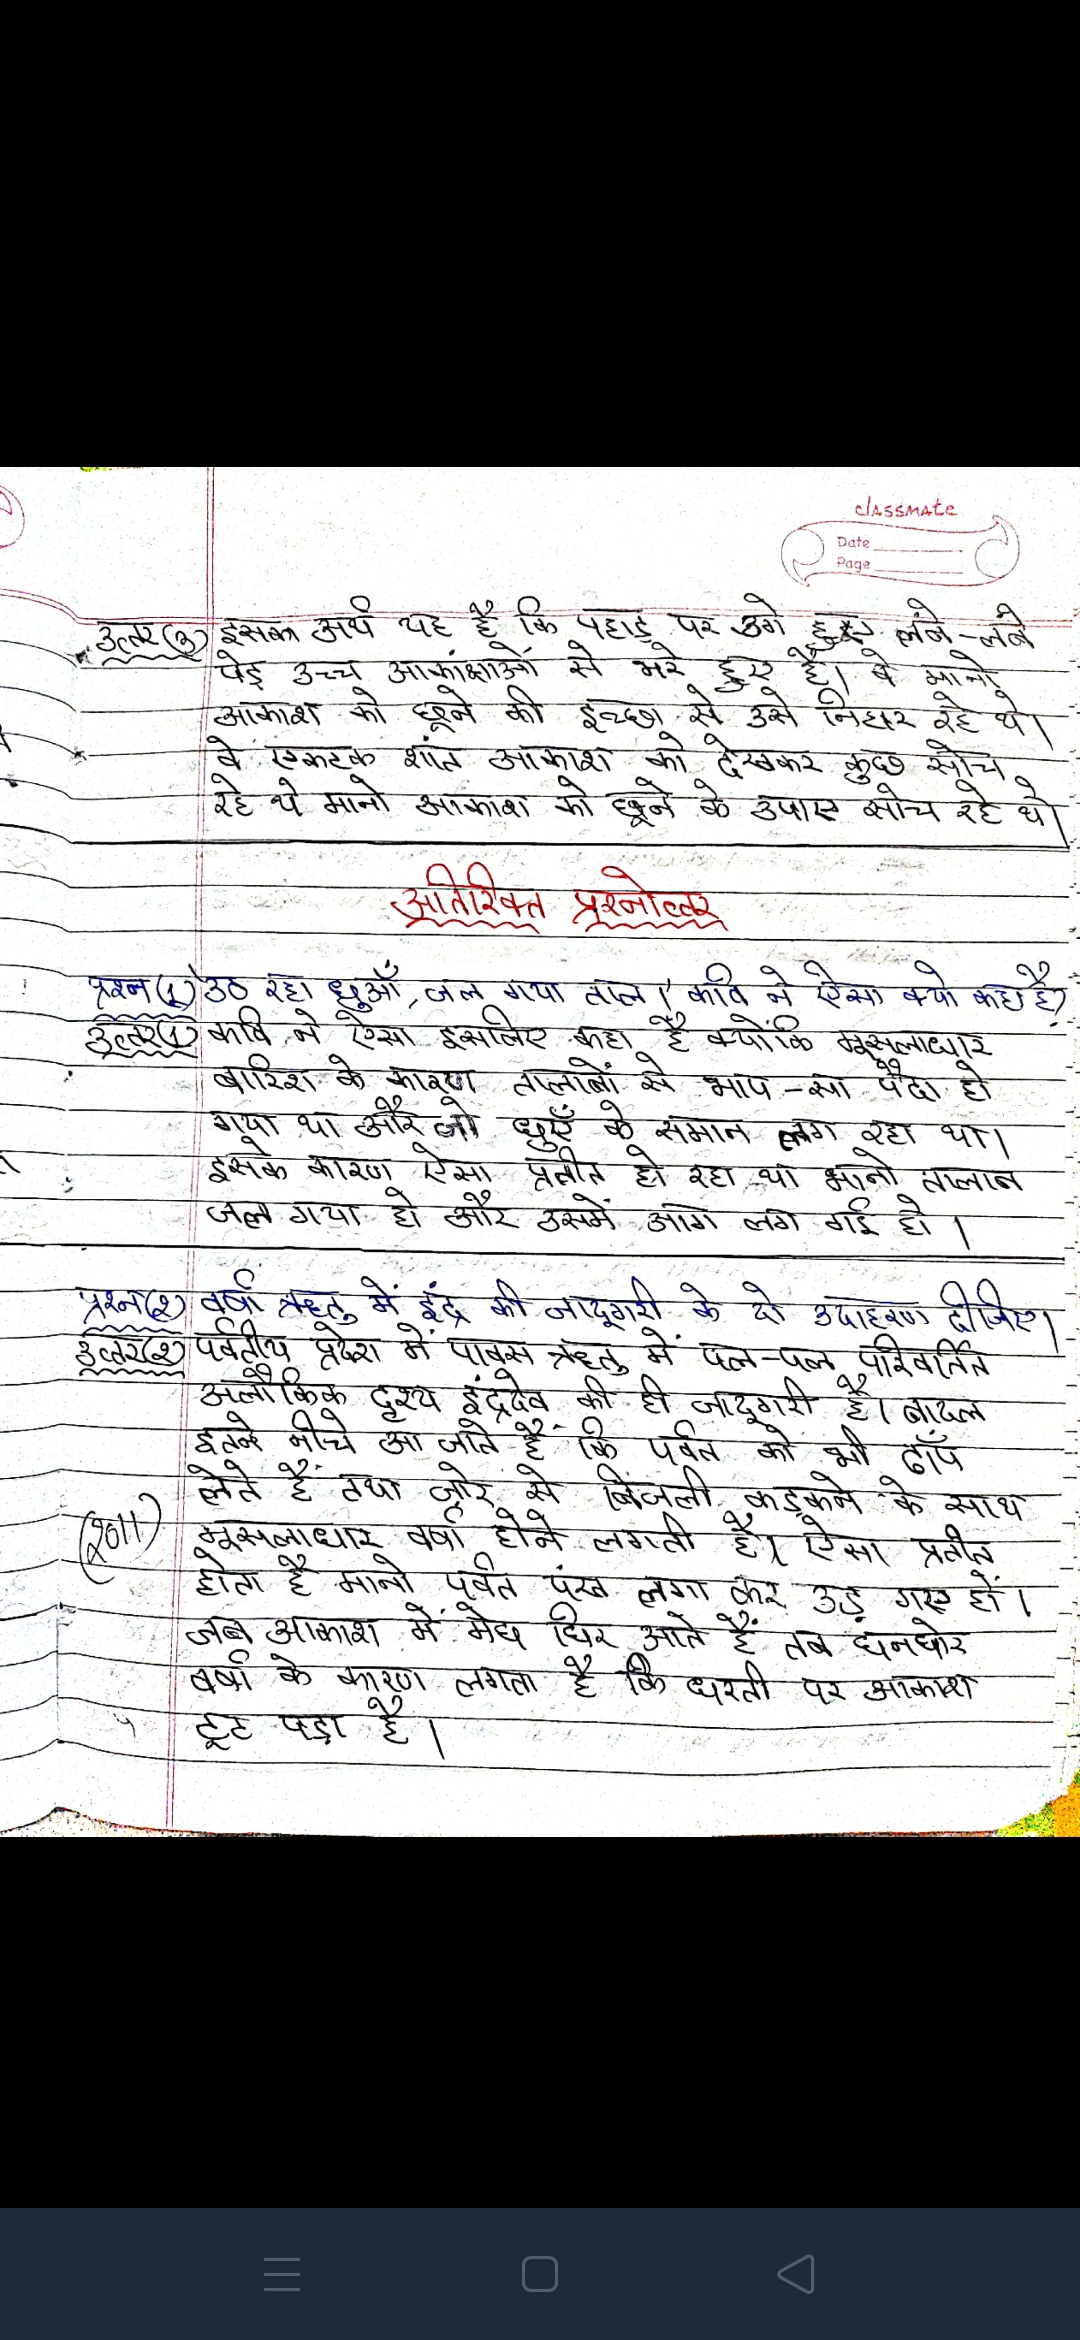 classmate
Date
Page
उत्तर(3) इसका अर्थ यह है कि पहाड़ पर उगे हुए लंबे-लंबे
पेड़ उच्च आकांक्षाओं से भरे हुए हैं। वे मानो
आकाश को छूने की इच्छा से उसे निहार रहे थे।
वे एकटक शांत आकाश को देखकर कुछ सोच
रहे थे मानो आकाश को छूने के उपाए सोच रहे थे।
अतिरिक्त प्रश्नोत्तर
प्रश्न(1) उठ रहा धुआँ, जल गया ताल।' कवि ने ऐसा क्यो कहा है?
उत्तर(1) कवि ने ऐसा इसलिए कहा है क्योंकि मूसलाधार
बारिश के कारण तालाबों से भाप-सा पैदा हो
गया था और जो धुएँ के समान लग रहा था।
इसके कारण ऐसा प्रतीत हो रहा था मानो तालाब
जल गया हो और उसमें आग लग गई हो।
प्रश्न(2) वर्षा ऋतु में इंद्र की जादूगरी के दो उदाहरण दीजिए।
उत्तर(2) पर्वतीय प्रदेश में पावस ऋतु में पल-पल परिवर्तित
अलौकिक दृश्य इंद्रदेव की ही जादूगरी है। बादल
इतने नीचे आ जाते हैं कि पर्वत को भी ढाँप
लेते हैं तथा ज़ोर से बिजली कड़कने के साथ
(2011) मूसलाधार वर्षा होने लगती है। ऐसा प्रतीत
होता है मानो पर्वत पंख लगा कर उड़ गए हों।
जब आकाश में मेघ घिर आते हैं तब घनघोर
वर्षा के कारण लगता है कि धरती पर आकाश
टूट पड़ा है।